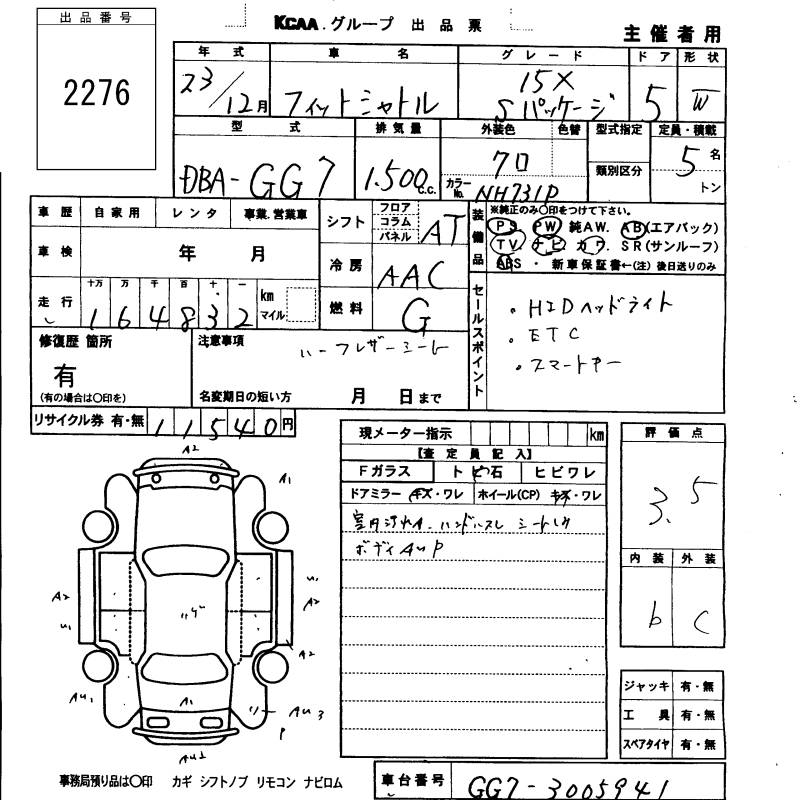 出品番号
2276
KCAA.グループ 出品票
主催者用
年式
23/12月
車名
フィットシャトル
グレード
15X
Sパッケージ
ドア
5
形状
W
型式
DBA-GG7
排気量
1.500c.c.
外装色 色替
クロ
カラーNo. NH731P
型式指定
類別区分
定員・積載
5名
トン
車歴 自家用 レンタ 事業、営業車
車検 年 月
走行 十万 万 千 百 十 一
164832 km
マイル
シフト フロア コラム パネル AT
冷房 AAC
燃料 G
装備品
※純正のみ○印をつけて下さい。
PS PW 純AW. AB(エアバック)
TV ナビ カワ SR(サンルーフ)
ABS ・ 新車保証書←(注) 後日送りのみ
セールスポイント
・HIDヘッドライト
・ETC
・スマートキー
修復歴 箇所
有
(有の場合は○印を)
注意事項
ハーフレザーシート
名変期日の短い方 月 日まで
リサイクル券 有・無 11540円
現メーター指示 km
【査定員記入】
Fガラス トビ石 ヒビワレ
ドアミラー キズ・ワレ ホイール(CP) キズ・ワレ
ボディAUP
評価点
3.5
内装 外装
b C
A2
A1
A2
A2
A2
AU1
A1
AU3
P
ジャッキ 有・無
工具 有・無
スペアタイヤ 有・無
事務局預り品は○印 カギ シフトノブ リモコン ナビロム
車台番号 GG7-3005941